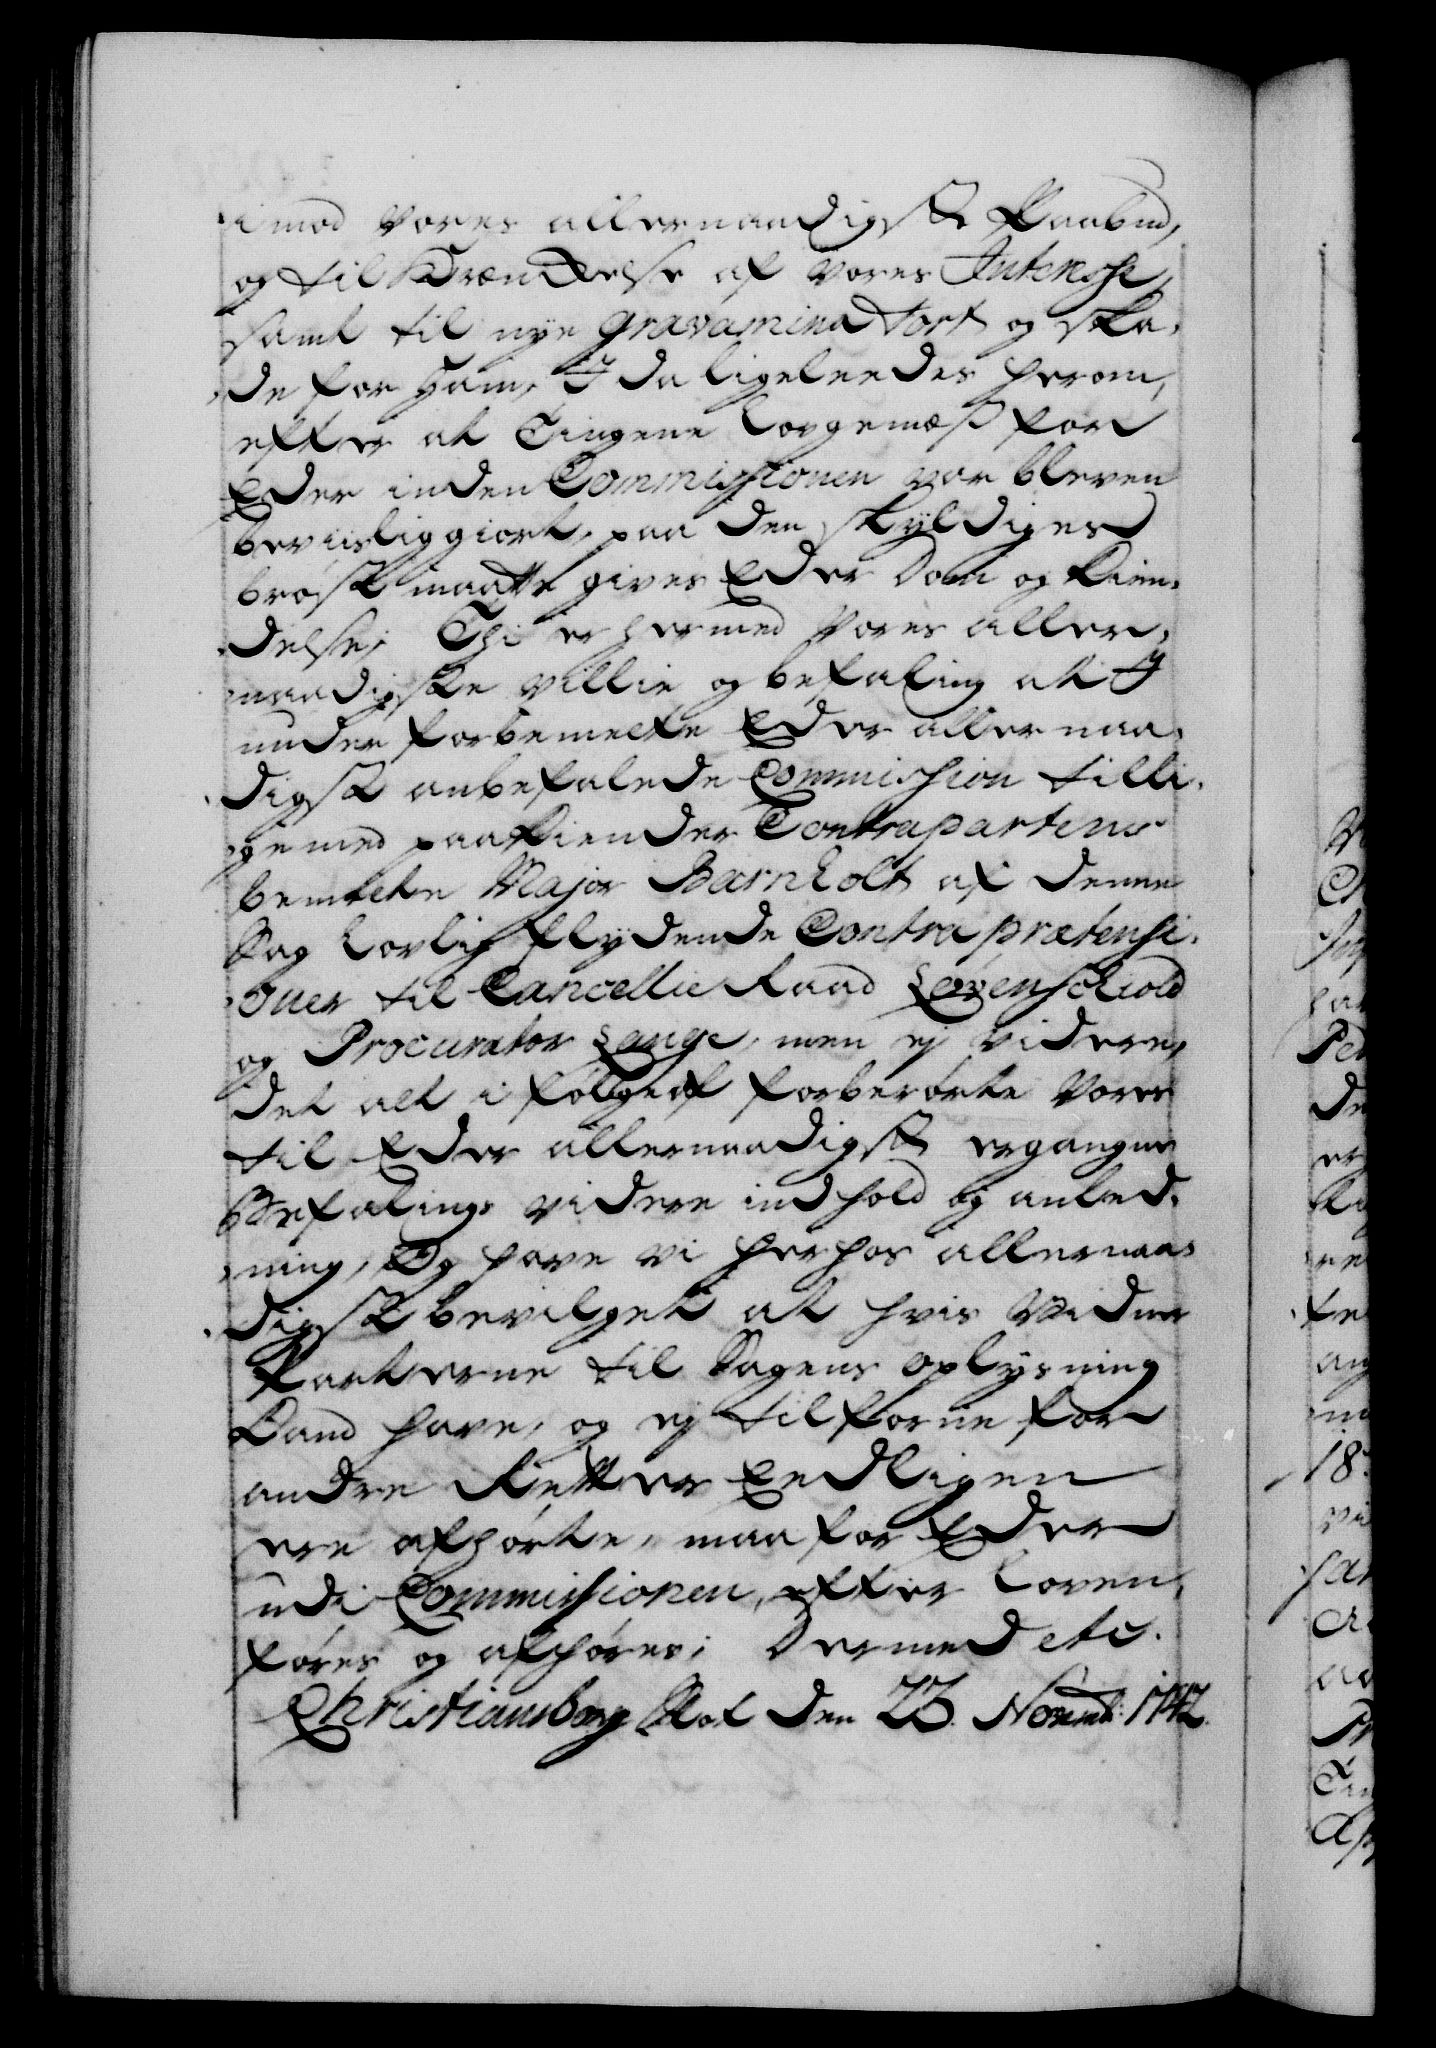 imod Vores allernaadigste Paabud,
og til Krænckelse af Vores Interesse,
samt til nye gravamina Tort og ska-
de for ham, I da ligeleedes herom,
efter at Tingene lovgemæs for
Eder inden Commissionen var bleven
beviisliggiort, paa den skyldiges
brøst maatte gives Eder Dom og Kien-
delse; Thi er hermed Vores aller-
naadigste villie og befaling at I
under forbemelte Eder allernaa-
digst anbefalede Commission tilli-
gemed paakiender Contrapartens
bemelte Major Barnholt af denne
Sag lovlig flydende Contraprætensi-
oner til Cancellie Raad Løvenschiold
og Procurator Lange, men ej videre,
det alt i følge af forberørte Vores
til Eder allernaadigst ergangne
Befalings videre indhold og anled-
ning, Og have vi herhos allernaa-
digst bevilget at hvis Vidner
Parterne til Sagens oplysning
Vand have, og ej tilforne for
andre Retter Eedligen
ere afhørte, maa for Eder
udi Commissionen, efter Loven,
føres og afhøres; Dermed etc.
Christiansborg Slot den 23. Novemb: 1742.